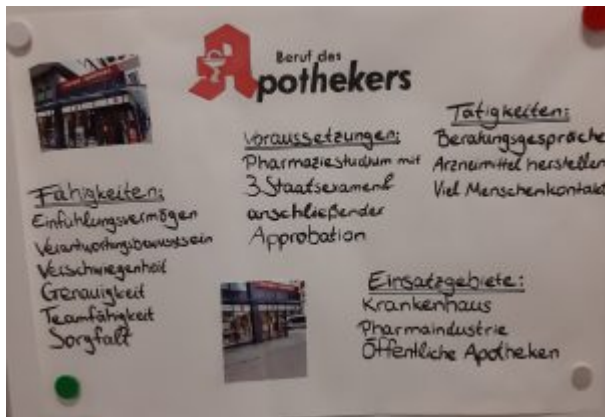 Beruf des
Apothekers
Fähigkeiten:
Einfühlungsvermögen
Verantwortungsbewusstsein
Verschwiegenheit
Genauigkeit
Teamfähigkeit
Sorgfalt
Voraussetzungen:
Pharmaziestudium mit
3. Staatsexamen &
anschließender
Approbation
Tätigkeiten:
Beratungsgespräche
Arzneimittel herstellen
Viel Menschenkontakt
Einsatzgebiete:
Krankenhaus
Pharmaindustrie
Öffentliche Apotheken